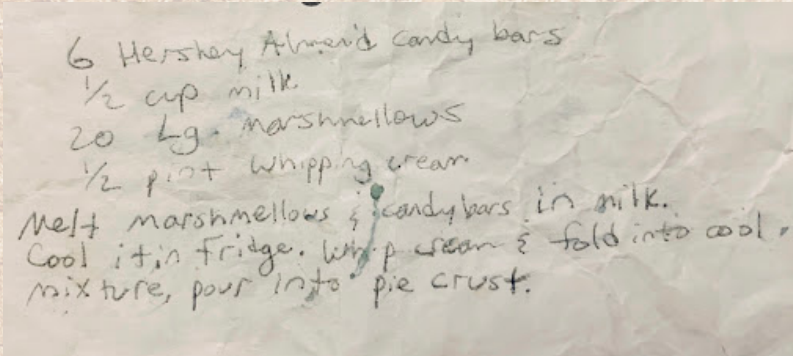 6 Hershey Almond candy bars
1/2 cup milk
20 Lg. marshmellows
1/2 pint whipping cream
Melt marshmellows & candy bars in milk.
Cool it in fridge. Whip cream & fold into cool
mixture, pour into pie crust.